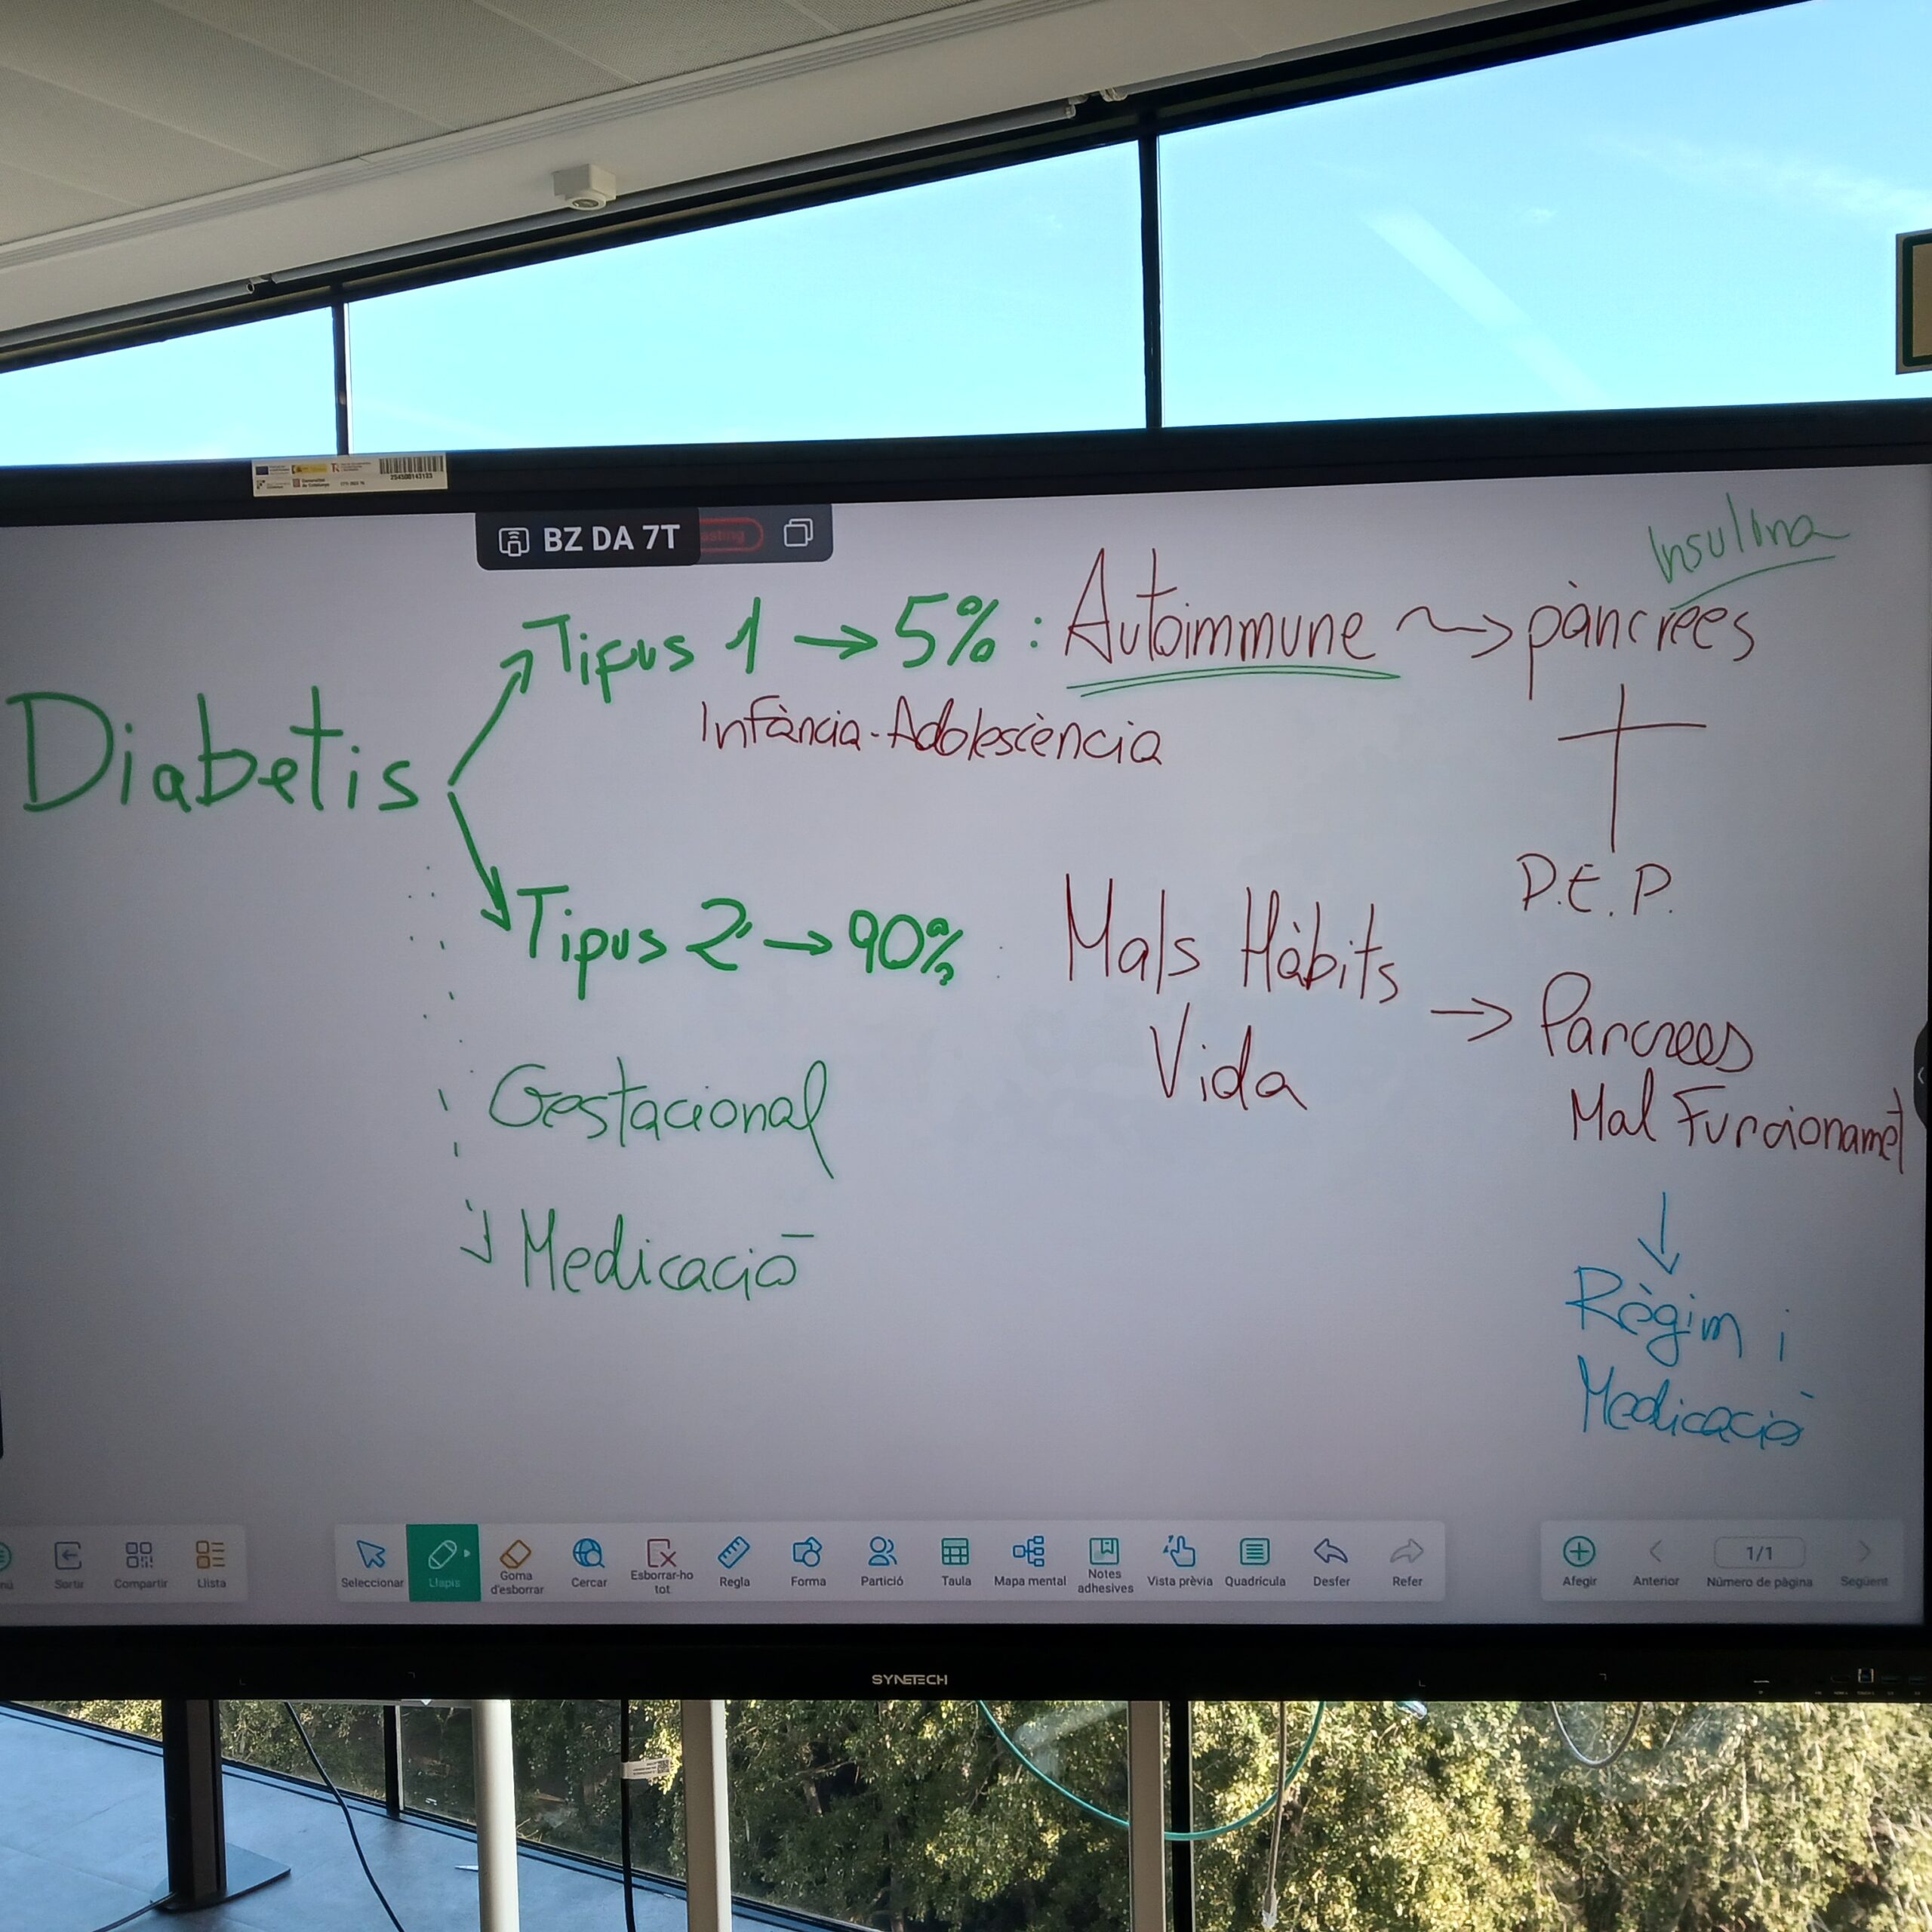 254500143103
BZ DA 7T
Insulina
Diabetis
Tipus 1 → 5% : Autoimmune → pàncrees
Infància-Adolescència
D.E.P.
Tipus 2 → 90% Mals Hàbits
Vida → Pancrees
Mal Funcionamet
Gestacional
Medicació
Règim i
Medicació
Sortir
Compartir
Llista
Seleccionar
Llapis
Goma
d'esborrar
Cercar
Esborrar-ho
tot
Regla
Forma
Partició
Taula
Mapa mental
Notes
adhesives
Vista prèvia
Quadrícula
Desfer
Refer
Afegir
Anterior
1/1
Número de pàgina
Següent
SYNETECH